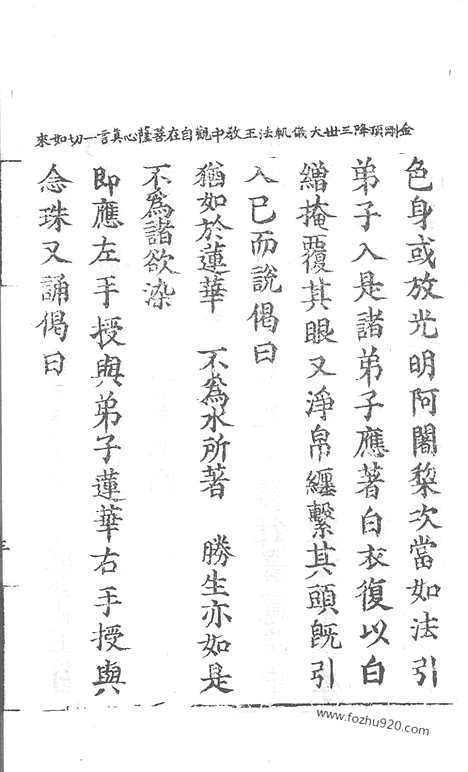 金剛頂降三世大儀軌法王教中觀自在菩薩心真言一切如來
色身或放光明阿闍梨次當如法引
弟子入是諸弟子應著白衣復以白
繒掩覆其眼又淨帛纏繫其頭旣引
入已而說偈曰
猶如於蓮華 不為水所著 勝生亦如是
不為諸欲染
即應左手授與弟子蓮華右手授與
念珠又誦偈曰
www.fozhu920.com